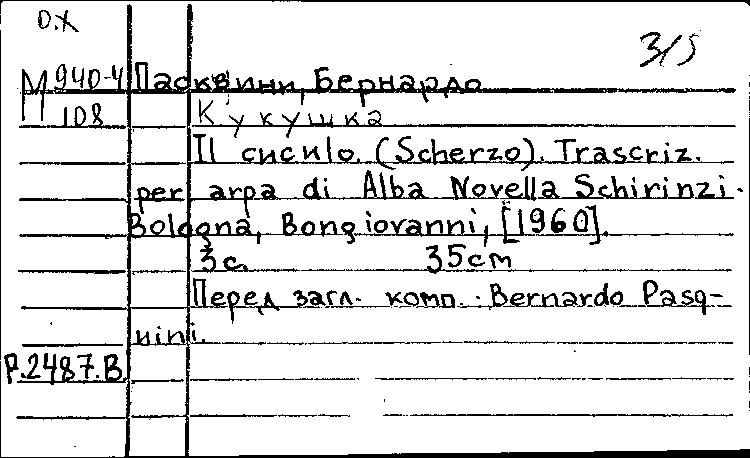 О.Х
3/5
М 940-4 Пасквини, Бернардо
108 Кукушка
Il cuculo. (Scherzo). Trascriz.
per arpa di Alba Novella Schirinzi.
Bologna, Bongiovanni, [1960].
3 с. 35cm
Перед загл. комп.: Bernardo Pasq-
uini.
Р.2487.В.